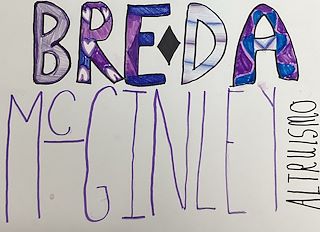 BRE♦DA
McGINLEY
ALTRUISMO